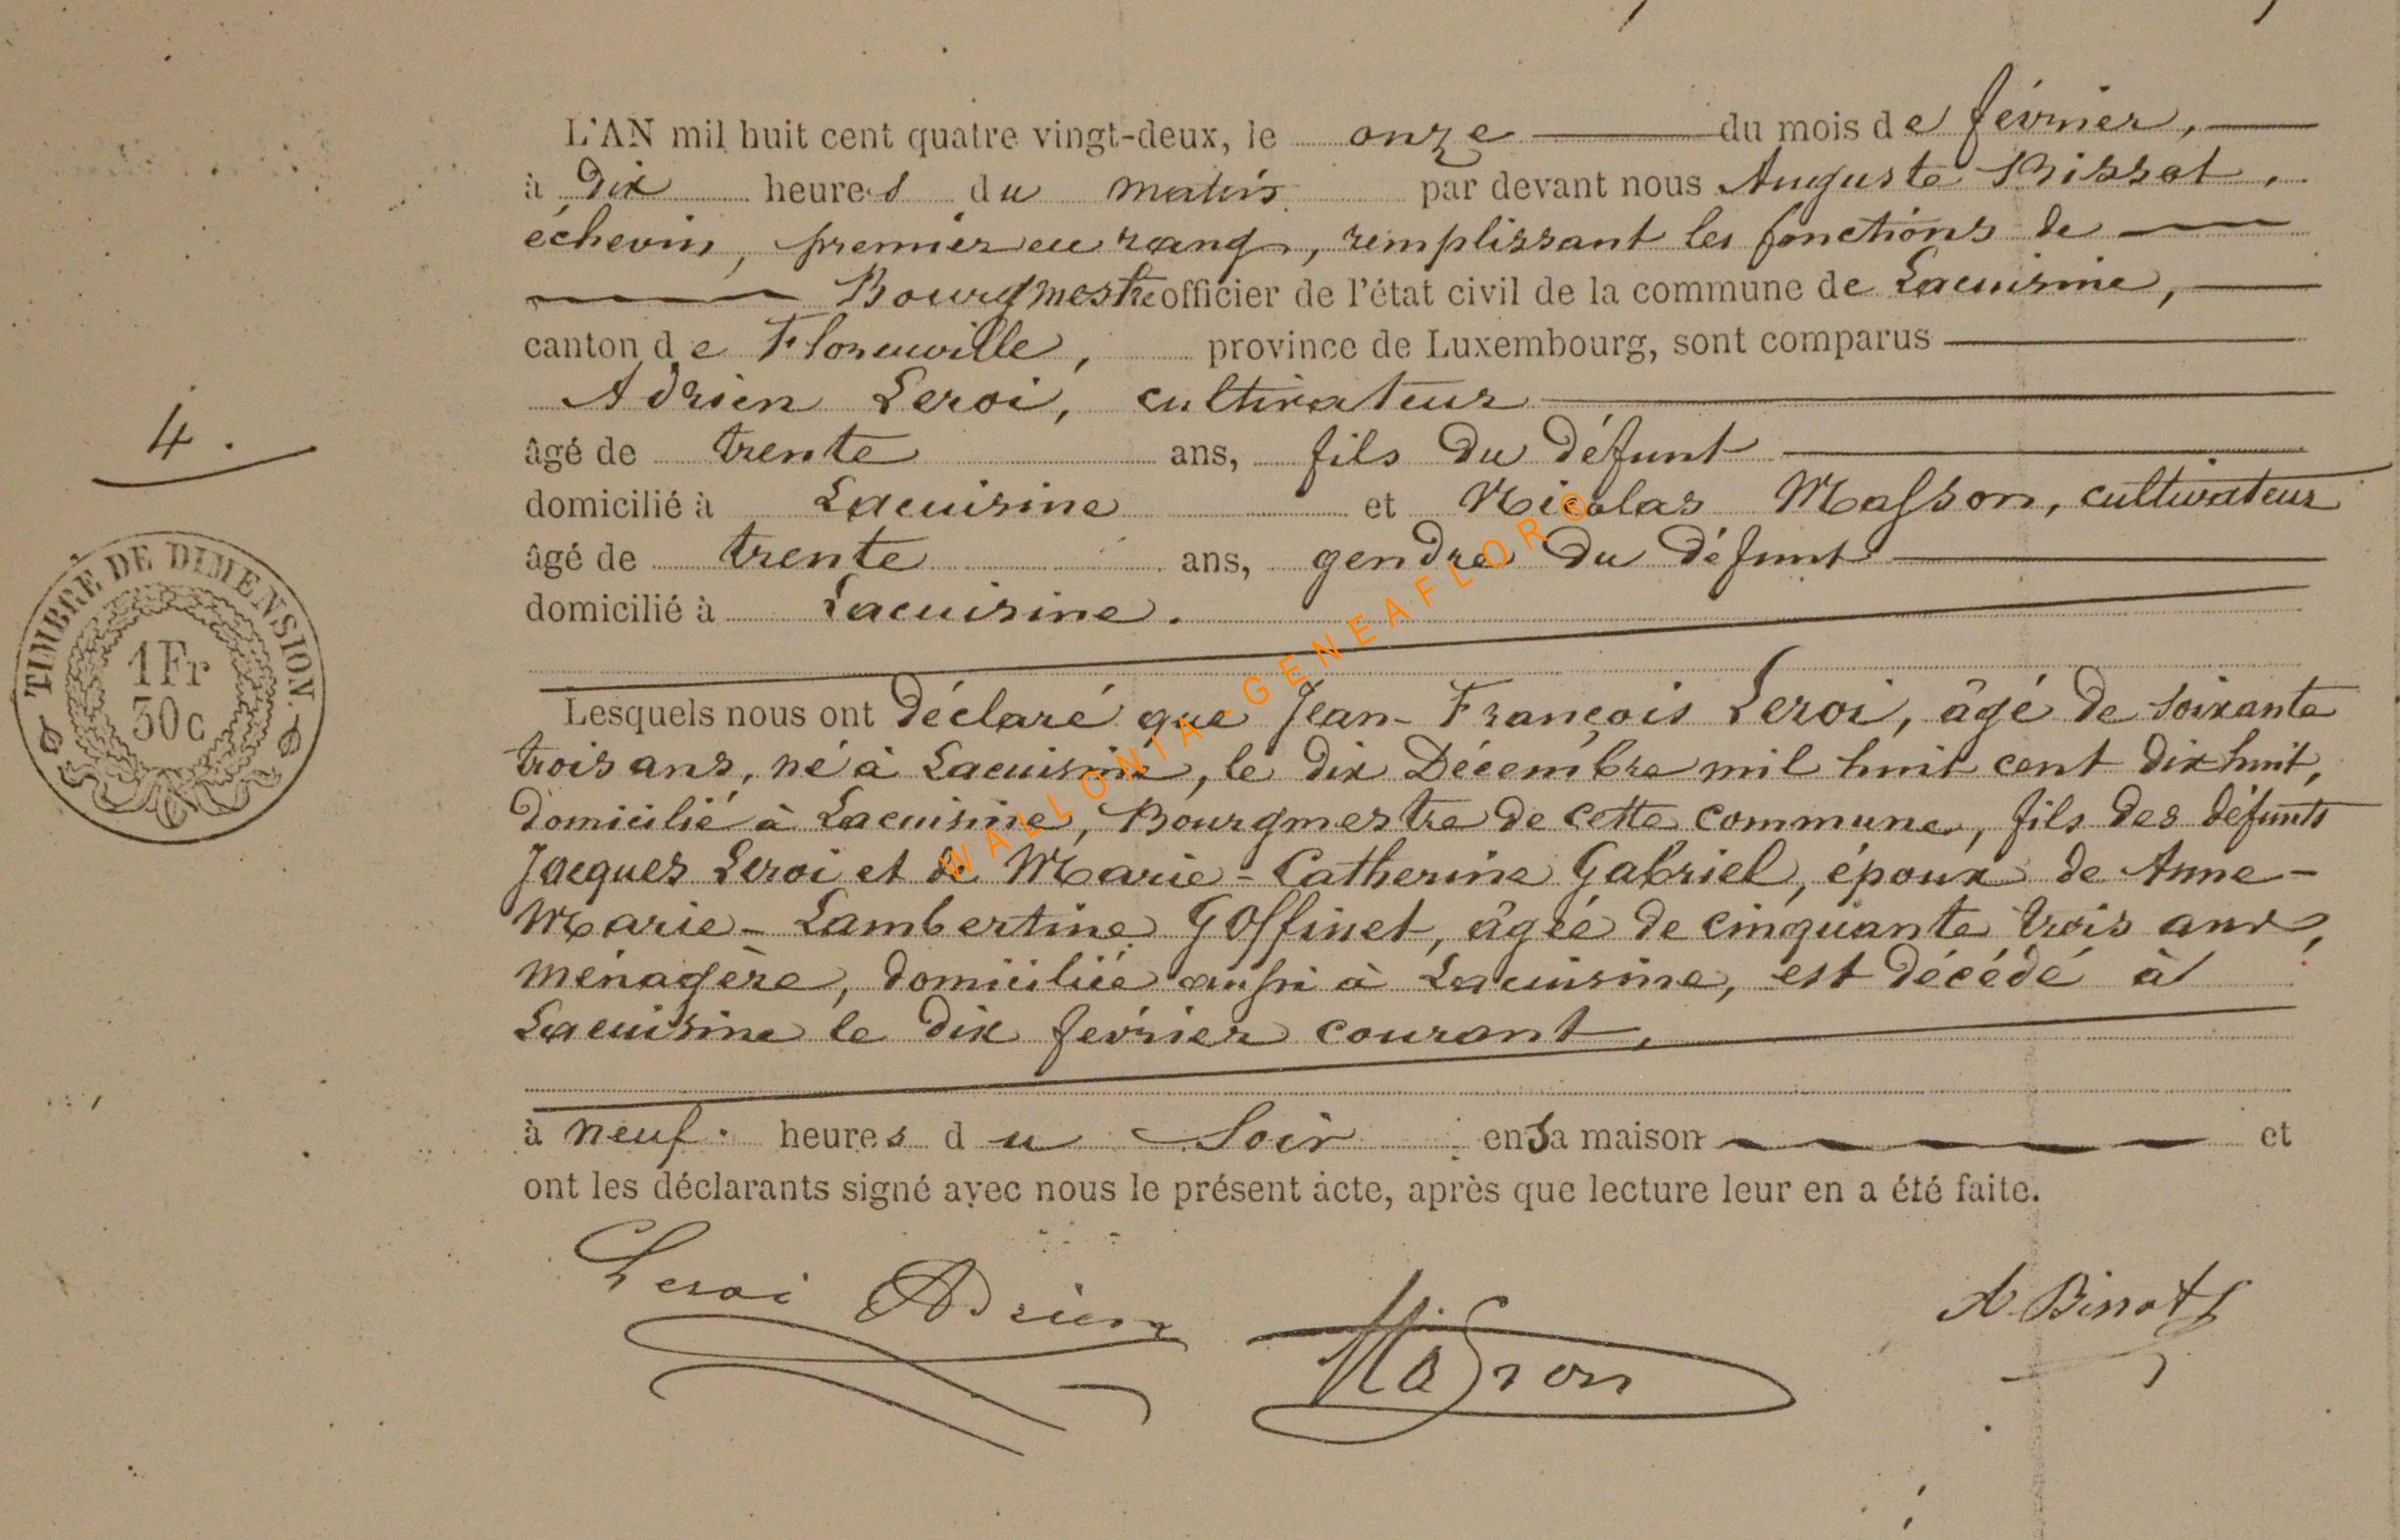 L'AN mil huit cent quatre vingt-deux, le onze du mois de février,
à Dix heures du matin par devant nous Auguste
échevin, premier en rang, remplissant les fonctions de
Bourgmestre officier de l'état civil de la commune de Lacuisine,
canton de Florenville, province de Luxembourg, sont comparus
Adrien Leroi, cultivateur
âgé de trente ans, fils du défunt
domicilié à Lacuisine et Nicolas Masson, cultivateur
âgé de trente ans, gendre du défunt
domicilié à Lacuisine.
4.
TIMBRE DE DIMENSION.
1Fr
50c
Lesquels nous ont déclaré que Jean-François Leroi, âgé de soixante
trois ans, né à Lacuisine, le dix Décembre mil huit cent dix huit,
domicilié à Lacuisine, Bourgmestre de cette commune, fils des défunts
Jacques Leroi et de Marie-Catherine Gabriel, époux de Anne-
Marie-Lambertine Goffinet, âgée de cinquante trois ans,
ménagère, domiciliée aussi à Lacuisine, est décédé à
Lacuisine le dix février courant,
à neuf heures du Soir en sa maison et
ont les déclarants signé avec nous le présent acte, après que lecture leur en a été faite.
Leroi Adrien
Masson
A Binot
WALLONIA-GENEAFLOR©